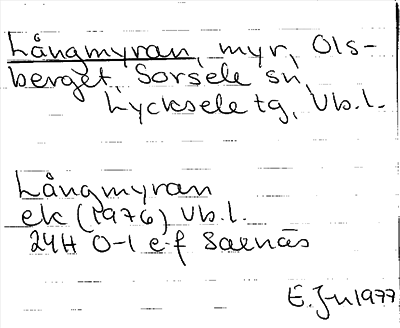 Långmyran, myr, Ols-
berget, Sorsele sn,
Lycksele tg, Vb.l.
Långmyran
ek (1976) Vb.l.
24H 0-1 e-f Saenäs
E. Jn 1977